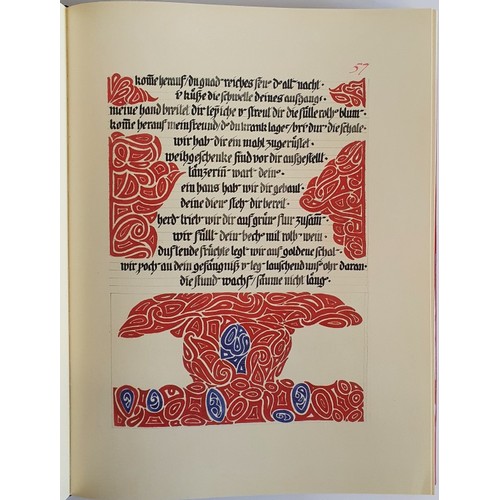 57
kom̄e herauf/du gnad reiches söñe d alt nacht·
v küße die schwelle deines aufgang·
meine hand breitet dir tepiche v streut dir die fülle roth blum·
kom̄e herauf mein freund/d du krank lage/brì dur die schale·
wir hab dir ein mahl zugerüstet·
weihgeschenke sind vor dir aufgestellt·
tänzeriñ wart dein·
ein haus hab wir dir gebaut·
deine dien steh dir bereit·
herd trieb wir dir auf grün flur zusam̄·
wir füllt dein bech mit roth wein·
duftende früchte legt wir auf goldene schal·
wir poch an dein gefängniß v leg lauschend unß ohr daran·
die stund wachs/säume nicht läng·